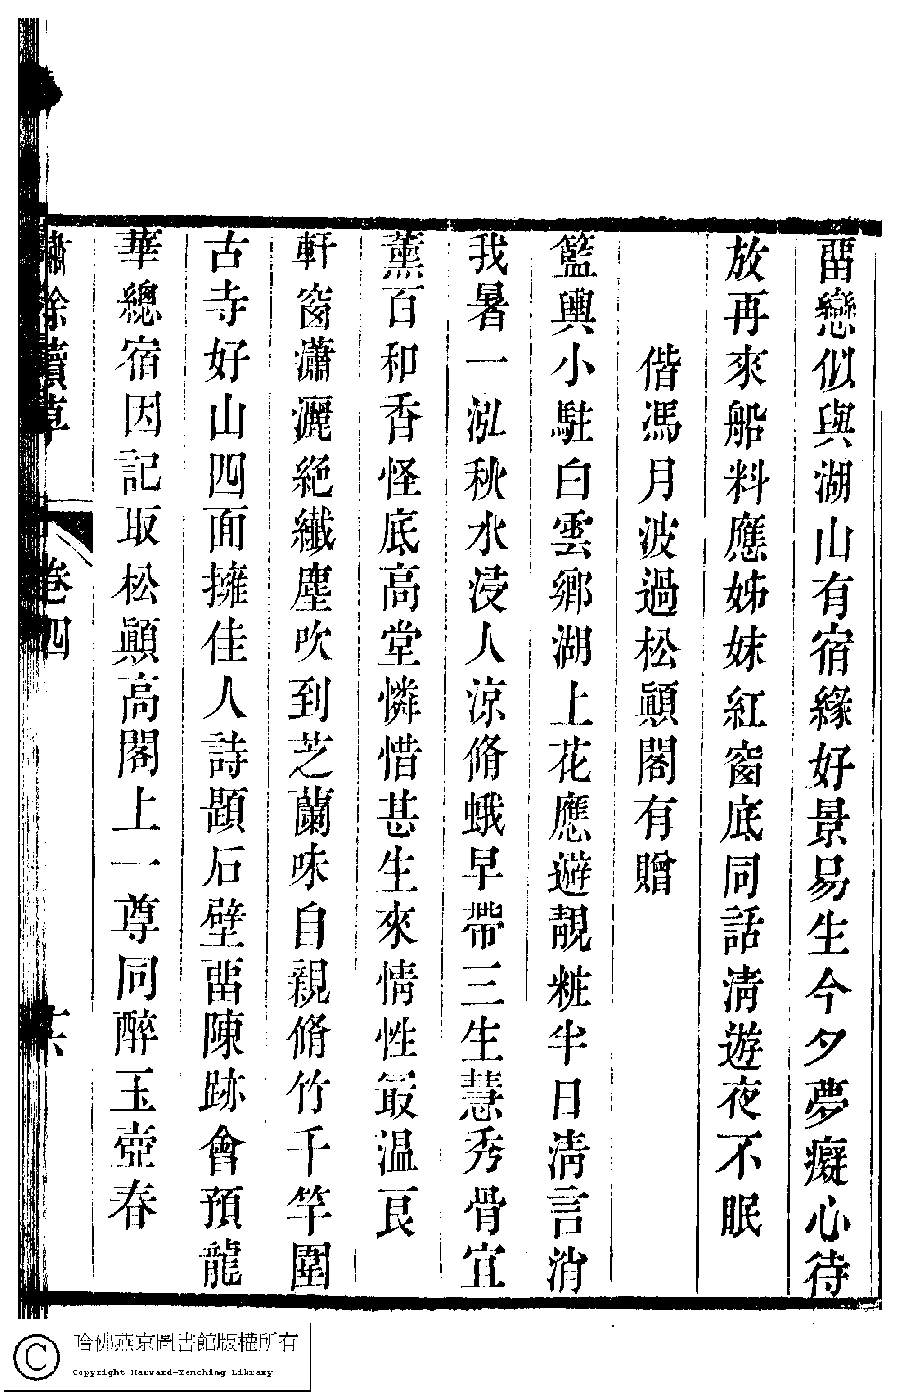 畱戀似與湖山有宿緣好景易生今夕夢癡心待
放再來船料應姊妹紅窗底同話清遊夜不眠
偕馮月波過松顚閣有贈
籃輿小駐白雲鄉湖上花應遊靚粧半日清言消
我暑一泓秋水浸人涼脩蛾早帶三生慧秀骨宜
薰百和香怪底高堂憐惜甚生來情性最温良
軒窗瀟灑絕纖塵吹到芝蘭味自親脩竹千竿圍
古寺好山四面擁佳人詩題石壁畱陳跡會預龍
華總宿因記取松顚高閣上一尊同醉玉壺春
餘續草
卷四
哈佛燕京圖書館版權所有
Copyright Harvard-Yenching Library